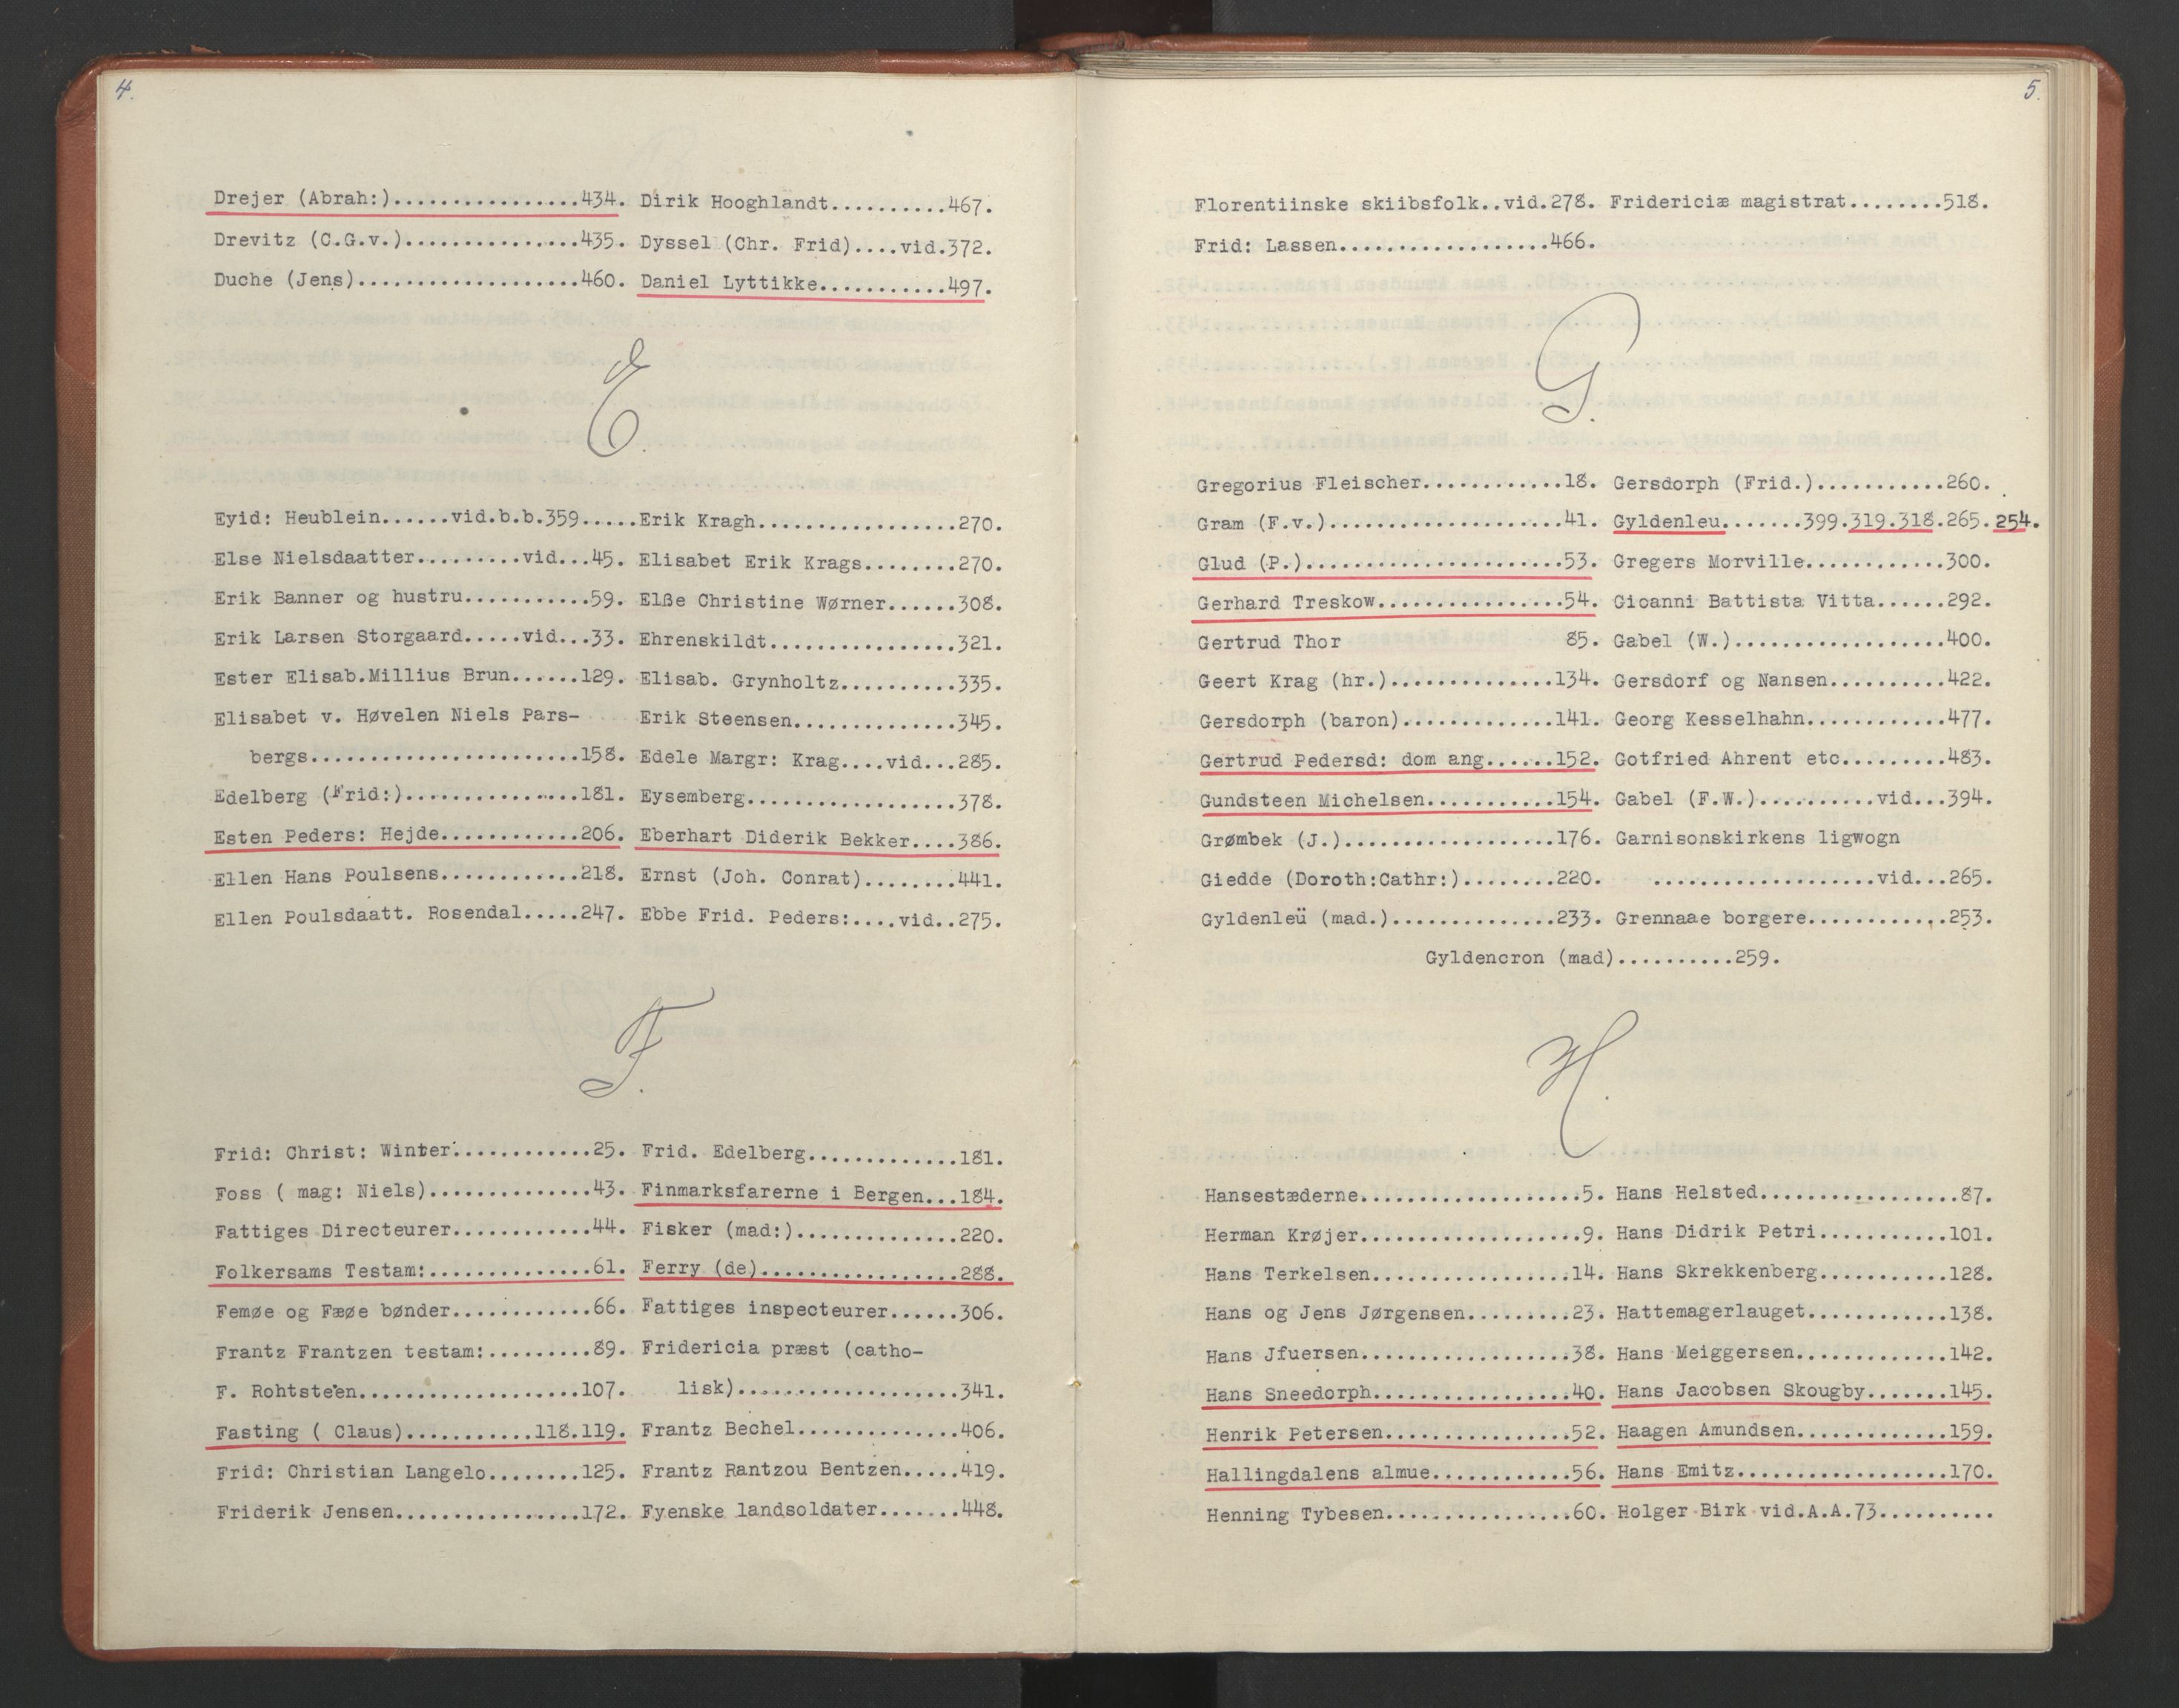 4.
Drejer (Abrah:)................434.
Drevitz (C.G.v.)...............435.
Duche (Jens)...................460.
Dirik Hooghlandt..........467.
Dyssel (Chr. Frid)....vid.372.
Daniel Lyttikke...........497.
E.
Eyid: Heublein......vid.b.b.359.....
Else Nielsdaatter.........vid...45.
Erik Banner og hustru...........59.
Erik Larsen Storgaard.....vid...33.
Ester Elisab.Millius Brun......129.
Elisabet v. Høvelen Niels Pars-
bergs.......................158.
Edelberg (Frid:)...............181.
Esten Peders: Hejde............206.
Ellen Hans Poulsens............218.
Ellen Poulsdaatt. Rosendal.....247.
Erik Kragh.................270.
Elisabet Erik Krags........270.
Elße Christine Wørner......308.
Ehrenskildt................321.
Elisab. Grynholtz..........335.
Erik Steensen..............345.
Edele Margr: Krag....vid...285.
Eysemberg..................378.
Eberhart Diderik Bekker....386.
Ernst (Joh. Conrat)........441.
Ebbe Frid. Peders:....vid..275.
F.
Frid: Christ: Winter............25.
Foss ( mag: Niels)..............43.
Fattiges Directeurer............44.
Folkersams Testam:..............61.
Femøe og Fæøe bønder............66.
Frantz Frantzen testam:.........89.
F. Rohtsteen...................107.
Fasting ( Claus)...........118.119.
Frid: Christian Langelo........125.
Friderik Jensen................172.
Frid. Edelberg.............181.
Finmarksfarerne i Bergen...184.
Fisker (mad:)..............220.
Ferry (de).................288.
Fattiges inspecteurer......306.
Fridericia præst (catho-
lisk)...................341.
Frantz Bechel..............406.
Frantz Rantzou Bentzen.....419.
Fyenske landsoldater.......448.
5.
Florentiinske skiibsfolk..vid.278.
Frid: Lassen..................466.
Fridericiæ magistrat........518.
G.
Gregorius Fleischer............18.
Gram (F.v.)....................41.
Glud (P.)......................53.
Gerhard Treskow................54.
Gertrud Thor 85.
Geert Krag (hr.)..............134.
Gersdorph (baron).............141.
Gertrud Pedersd: dom ang......152.
Gundsteen Michelsen...........154.
Grømbek (J.)..................176.
Giedde (Doroth:Cathr:)........220.
Gyldenleü (mad.)..............233.
Gersdorph (Frid.)...........260.
Gyldenleu.......399.319.318.265.254.
Gregers Morville............300.
Gioanni Battista Vitta......292.
Gabel (W.)..................400.
Gersdorf og Nansen..........422.
Georg Kesselhahn............477.
Gotfried Ahrent etc.........483.
Gabel (F.W.)..........vid...394.
Garnisonskirkens ligwogn
...................vid...265.
Grennaae borgere............253.
Gyldencron (mad)..........259.
H.
Hansestæderne...................5.
Herman Krøjer...................9.
Hans Terkelsen.................14.
Hans og Jens Jørgensen.........23.
Hans Jfuersen..................38.
Hans Sneedorph.................40.
Henrik Petersen................52.
Hallingdalens almue............56.
Henning Tybesen................60.
Hans Helsted.................87.
Hans Didrik Petri...........101.
Hans Skrekkenberg...........128.
Hattemagerlauget............138.
Hans Meiggersen.............142.
Hans Jacobsen Skougby.......145.
Haagen Amundsen.............159.
Hans Emitz..................170.
Holger Birk vid.A.A.73..........